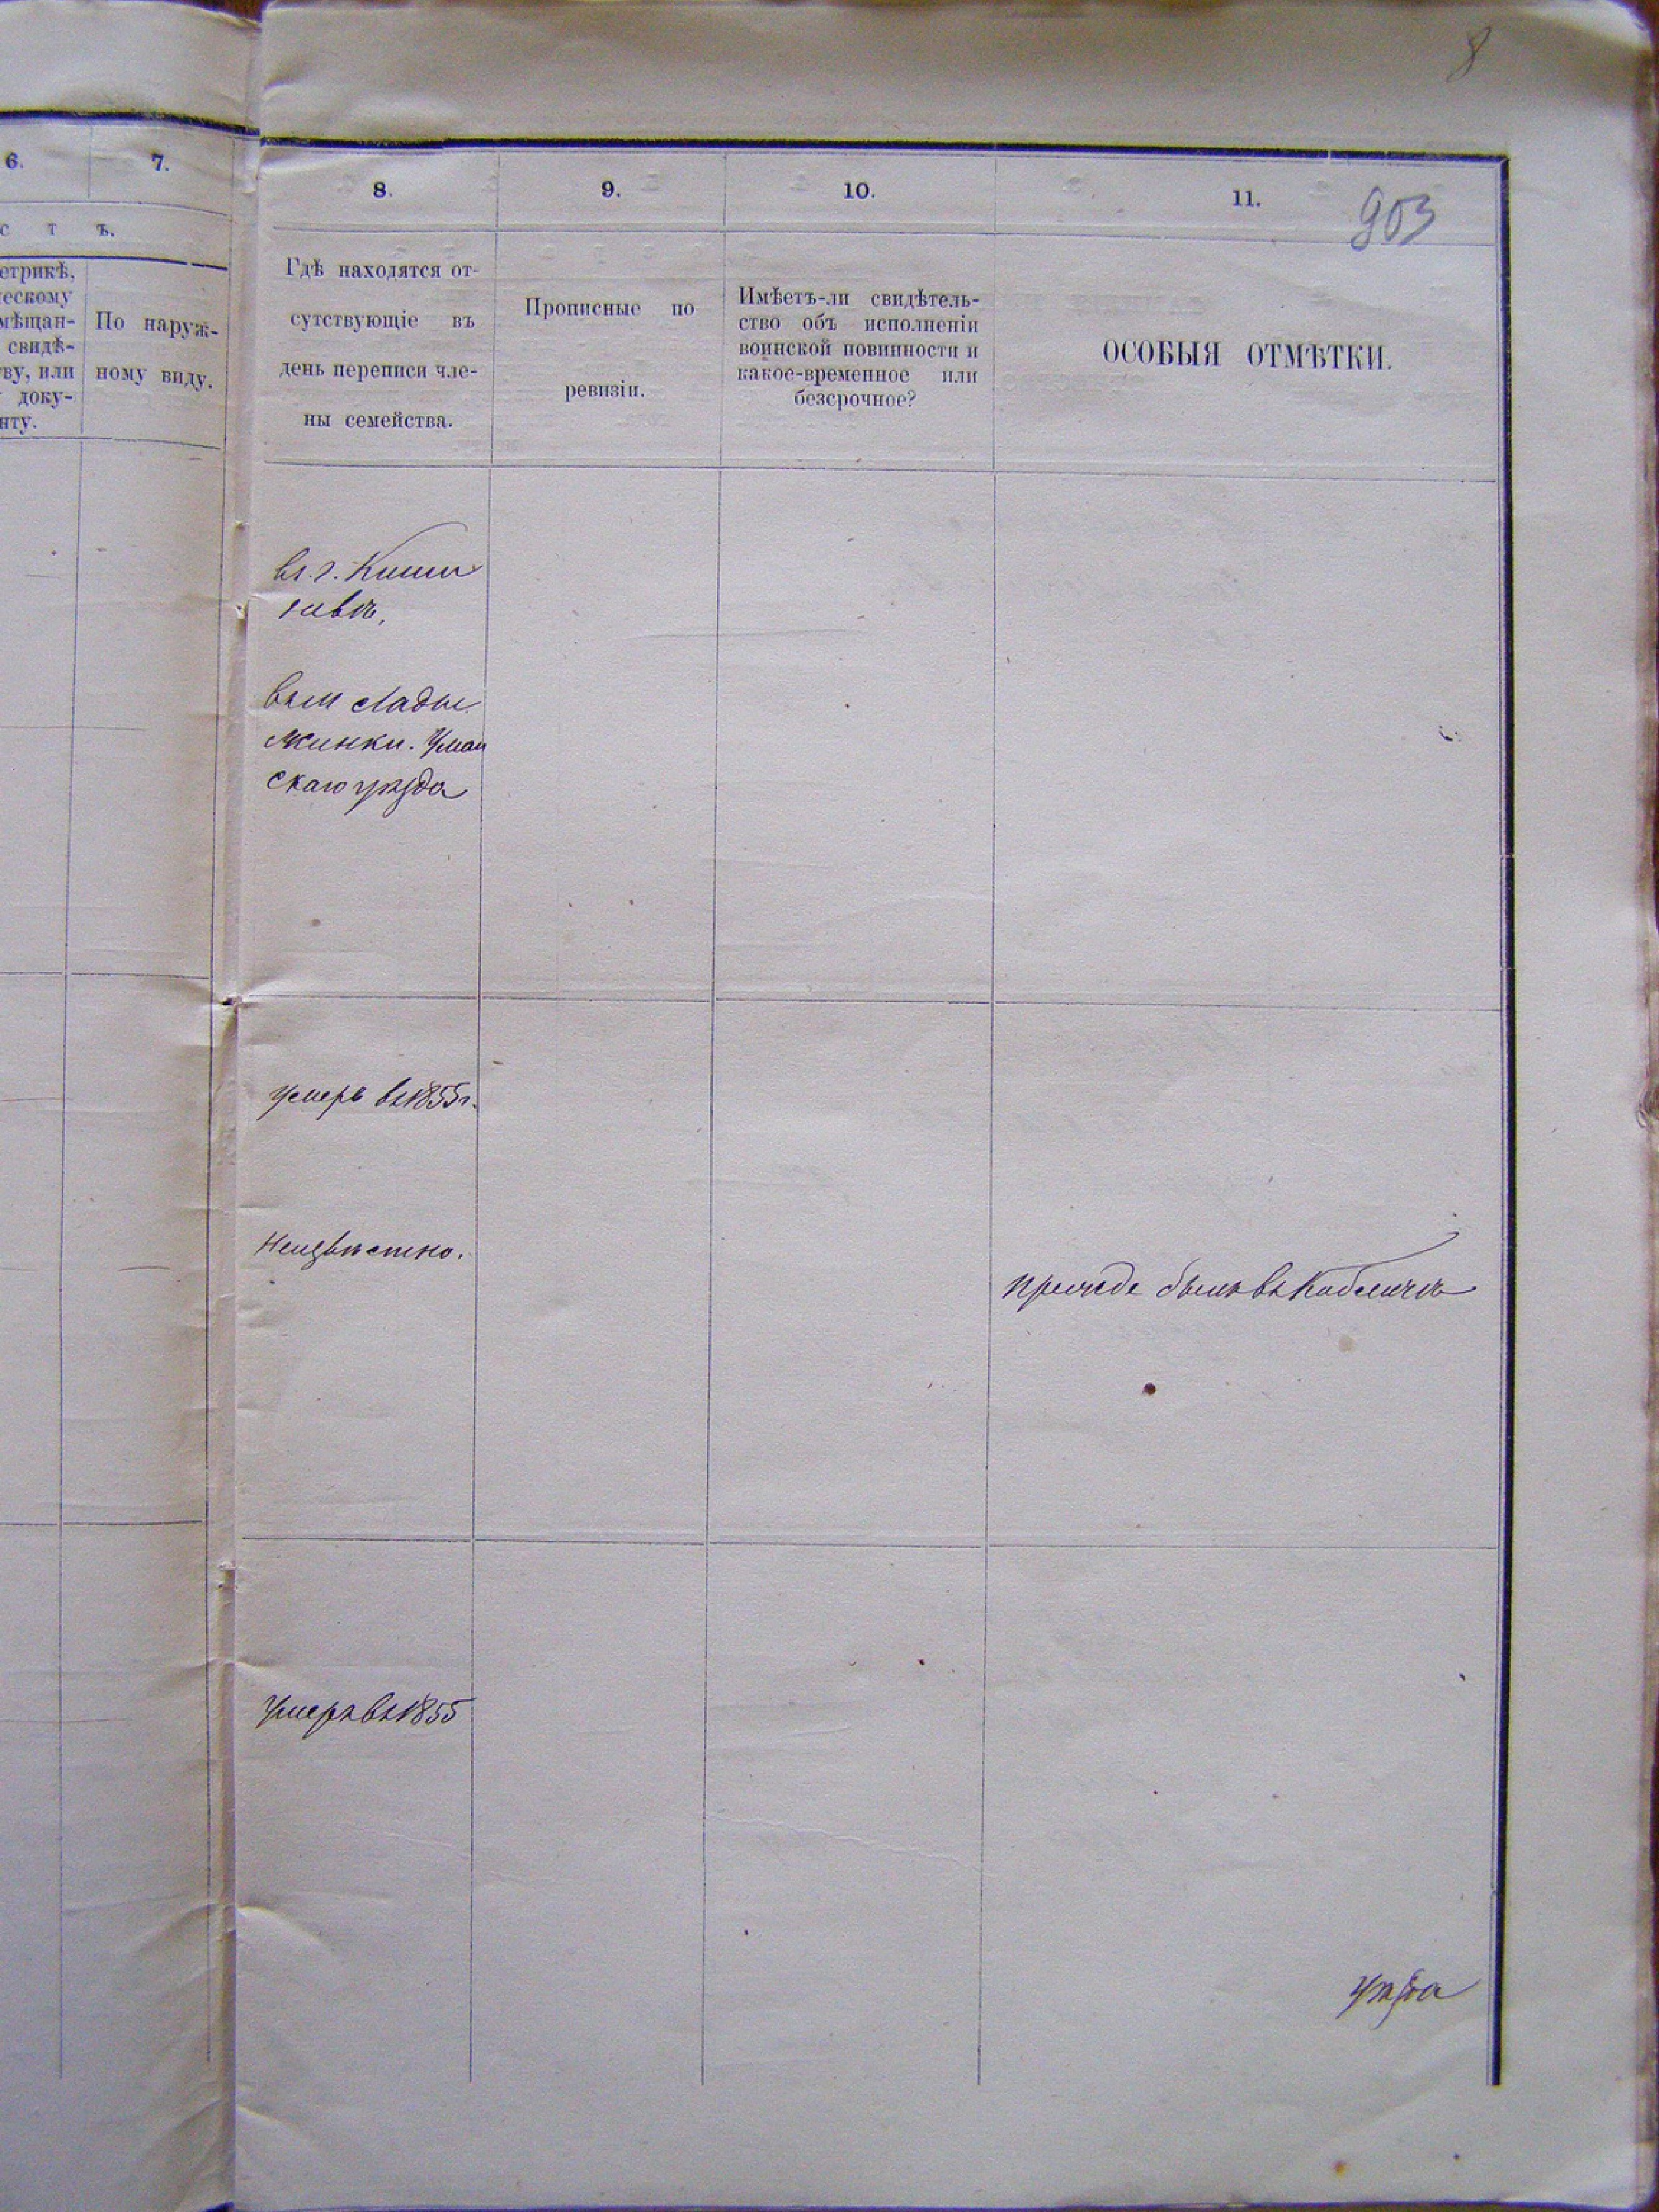 8
6.
7.
с т ъ.
етрикѣ,
ческому
мѣщан-
свидѣ-
ву, или
доку-
нту.
По наруж-
ному виду.
8.
9.
10.
11.
903
Гдѣ находятся от-
сутствующіе въ
день переписи чле-
ны семейства.
Прописные по
ревизіи.
Имѣетъ-ли свидѣтель-
ство объ исполненіи
воинской повинности и
какое-временное или
безсрочное?
ОСОБЫЯ ОТМѢТКИ.
въ г. Киши
невѣ,
въ м Лады
жинки. Уман
скаго уѣзда
умеръ въ 1855 г.
Неизвѣстно.
прежде былъ въ
Умеръ въ 1855
уѣзда